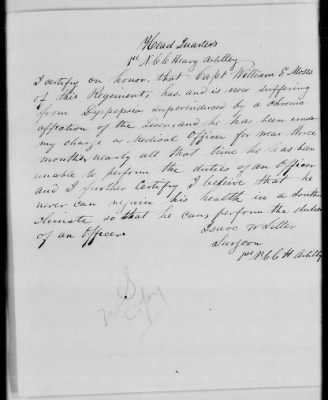 Head Quarters
1st N.C.C. Heavy Artillery
I certify on honor, that Capt William E. Moses
of this Regement, has, and is now suffering
from Dyspepsia superinduced by a chronic
affection of the Liver, and he has been under
my charge as Medical Officer for near three
months, nearly all that time he has been
unable to perform the duties of an Officer
and I further Certify I believe that he
never can regain his health in a South
climate so that he can, perform the duties
of an Officer
Isaac W
Surgeon
1st N.C.C. H Artillery
Copy